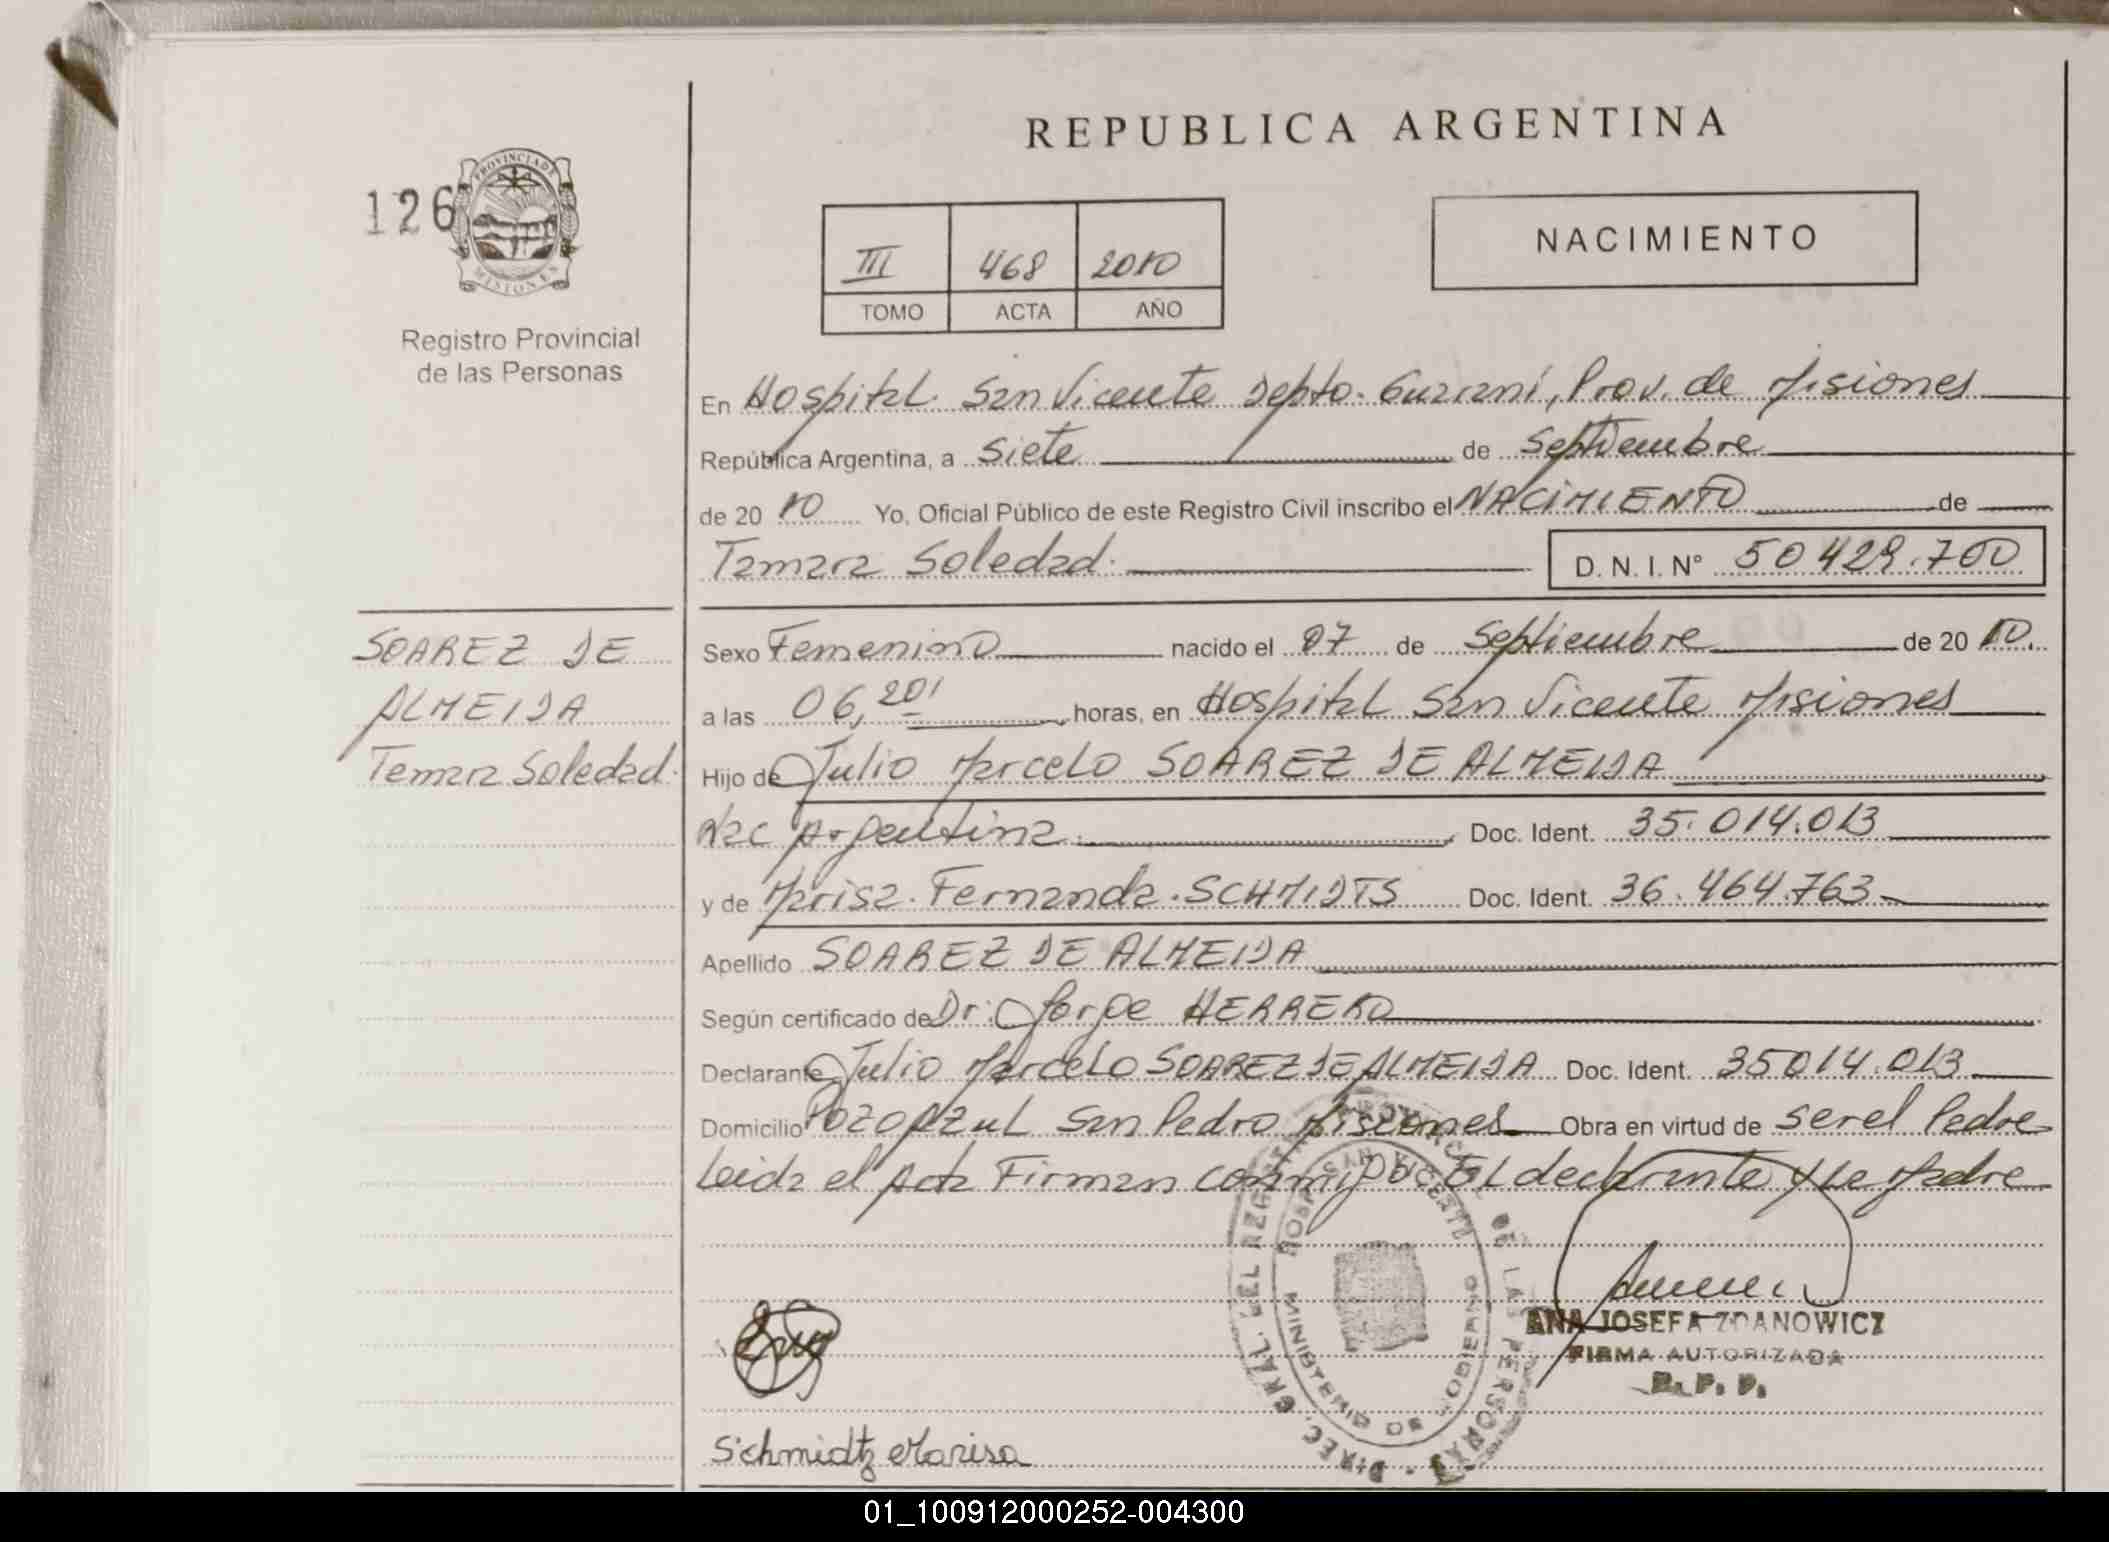 REPUBLICA ARGENTINA
126
PROVINCIA DE
MISIONES
Registro Provincial
de las Personas
III 468 2010
TOMO ACTA AÑO
NACIMIENTO
En Hospital San Vicente Depto. Guarani, Prov. de Misiones
República Argentina, a siete de Septiembre
de 20 10 Yo, Oficial Público de este Registro Civil inscribo el NACIMIENTO de
Tamara Soledad. D. N. I. N° 50429.700
SOAREZ DE
ALMEIDA
Tamara Soledad.
Sexo Femenino nacido el 07 de Septiembre de 20 10.
a las 06,20' horas, en Hospital San Vicente Misiones
Hijo de Julio Marcelo SOAREZ DE ALMEIDA
Nac Argentina. Doc. Ident. 35.014.013
y de Marisa. Fernanda. SCHMIDTS Doc. Ident. 36.464.763
Apellido SOAREZ DE ALMEIDA
Según certificado de Dr: Jorge HERRERO
Declarante Julio Marcelo SOAREZ DE ALMEIDA Doc. Ident. 35014.013
Domicilio Pozo Azul San Pedro Misiones Obra en virtud de ser el Padre
Leida el Acta Firman conmigo El declarante y la Madre
ANA JOSEFA ZDANOWICZ
FIRMA AUTORIZADA
R. P. P.
Schmidtz Marisa
01_100912000252-004300